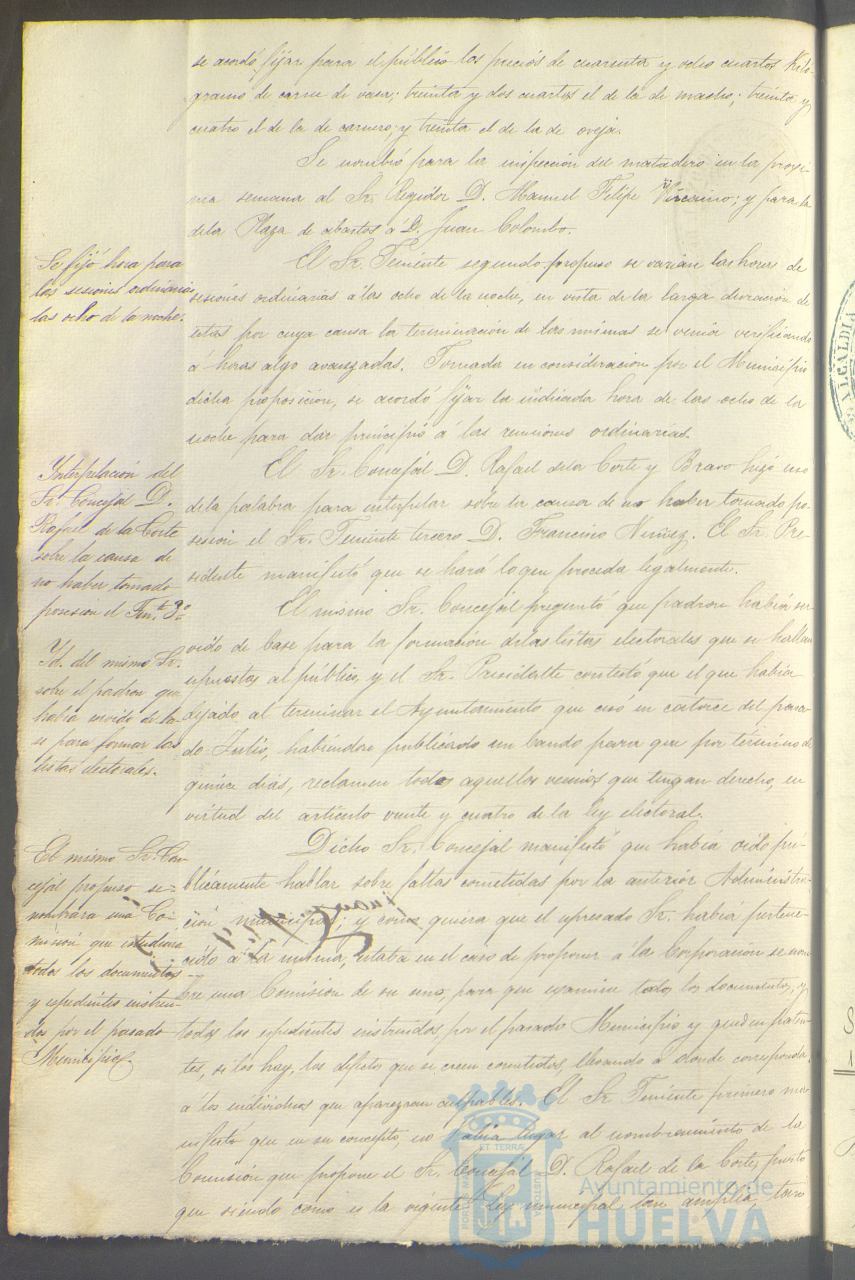 se acordó fijar para el público los precios de cuarenta y ocho cuartos Kiló-
gramo de carne de vaca; treinta y dos cuartos el de la de macho; treinta y
cuatro el de la de carnero; y treinta el de la de oveja.
Se nombró para la inspección del matadero en la proxi-
ma semana al Sr. Regidor D. Manuel Felipe Vizcaino; y para la
dela Plaza de abastos á D. Juan Colombo.
Se fijó hora para
las sesiones ordinarias
las ocho de la noche.
El Sr. Teniente segundo propuso se varian las horas de
sesiones ordinarias á las ocho de la noche, en vista de la larga duracion de
estas por cuya causa la terminacion de las mismas se venia verificando
á horas algo avanzadas. Tomada en consideracion por el Municipio
dicha proposicion, se acordó fijar la indicada hora de las ocho de la
noche para dar principio á las reuniones ordinarias.
Interpelación del
Sr. Concejal D.
Rafael de la Corte
sobre la causa de
no haber tomado
posesion el Tent.e 3º
El Sr. Concejal D. Rafael dela Corte y Bravo hizo uso
dela palabra para interpelar sobre la causa de no haber tomado po-
sesion el Sr. Teniente tercero D. Francisco Nuñez. El Sr. Pre-
sidente manifestó que se hará lo que proceda legalmente.
Yd. del mismo Sr.
sobre el padron que
habia servido de ba-
se para formar las
listas electorales.
El mismo Sr. Concejal preguntó que padron habia ser-
vido de base para la formacion delas listas electorales que se hallan
espuestas al público, y el Sr. Presidente contestó que el que habia
dejado al terminar el Ayuntamiento que cesó en catorce del pasa-
do Julio, habiendose publicado un bando para que por término de
quince dias, reclamen todos aquellos vecinos que tengan derecho, en
virtud del artículo veinte y cuatro de la ley electoral.
El mismo Sr. Con-
cejal propuso se
nombrara una Co-
mision que estudiara
todos los documentos
y espedientes instrui-
dos por el pasado
Municipio
Dicho Sr. Concejal manifestó que habia oido pú-
blicamente hablar sobre faltas cometidas por la anterior Administra-
cion municipal; y como quiera que el espresado Sr. habia pertene-
cido á la misma, estaba en el caso de proponer á la Corporacion se nom-
bre una Comision de su seno, para que examine todos los documentos, y
todos los espedientes instruidos por el pasado Municipio y queden paten-
tes, si los hay, los defectos que se crean cometidos, llevando á donde corresponda
á los individuos que aparezcan culpables. El Sr. Teniente primero ma-
nifestó que en su concepto, no habia lugar al nombramiento de la
Comision que propone el Sr. Concejal D. Rafael de la Corte, puesto
que siendo como es la vigente ley municipal tan amplia, tan
ALCALDIA
ET TERRAE
CUSTODIA
Ayuntamiento de
HUELVA